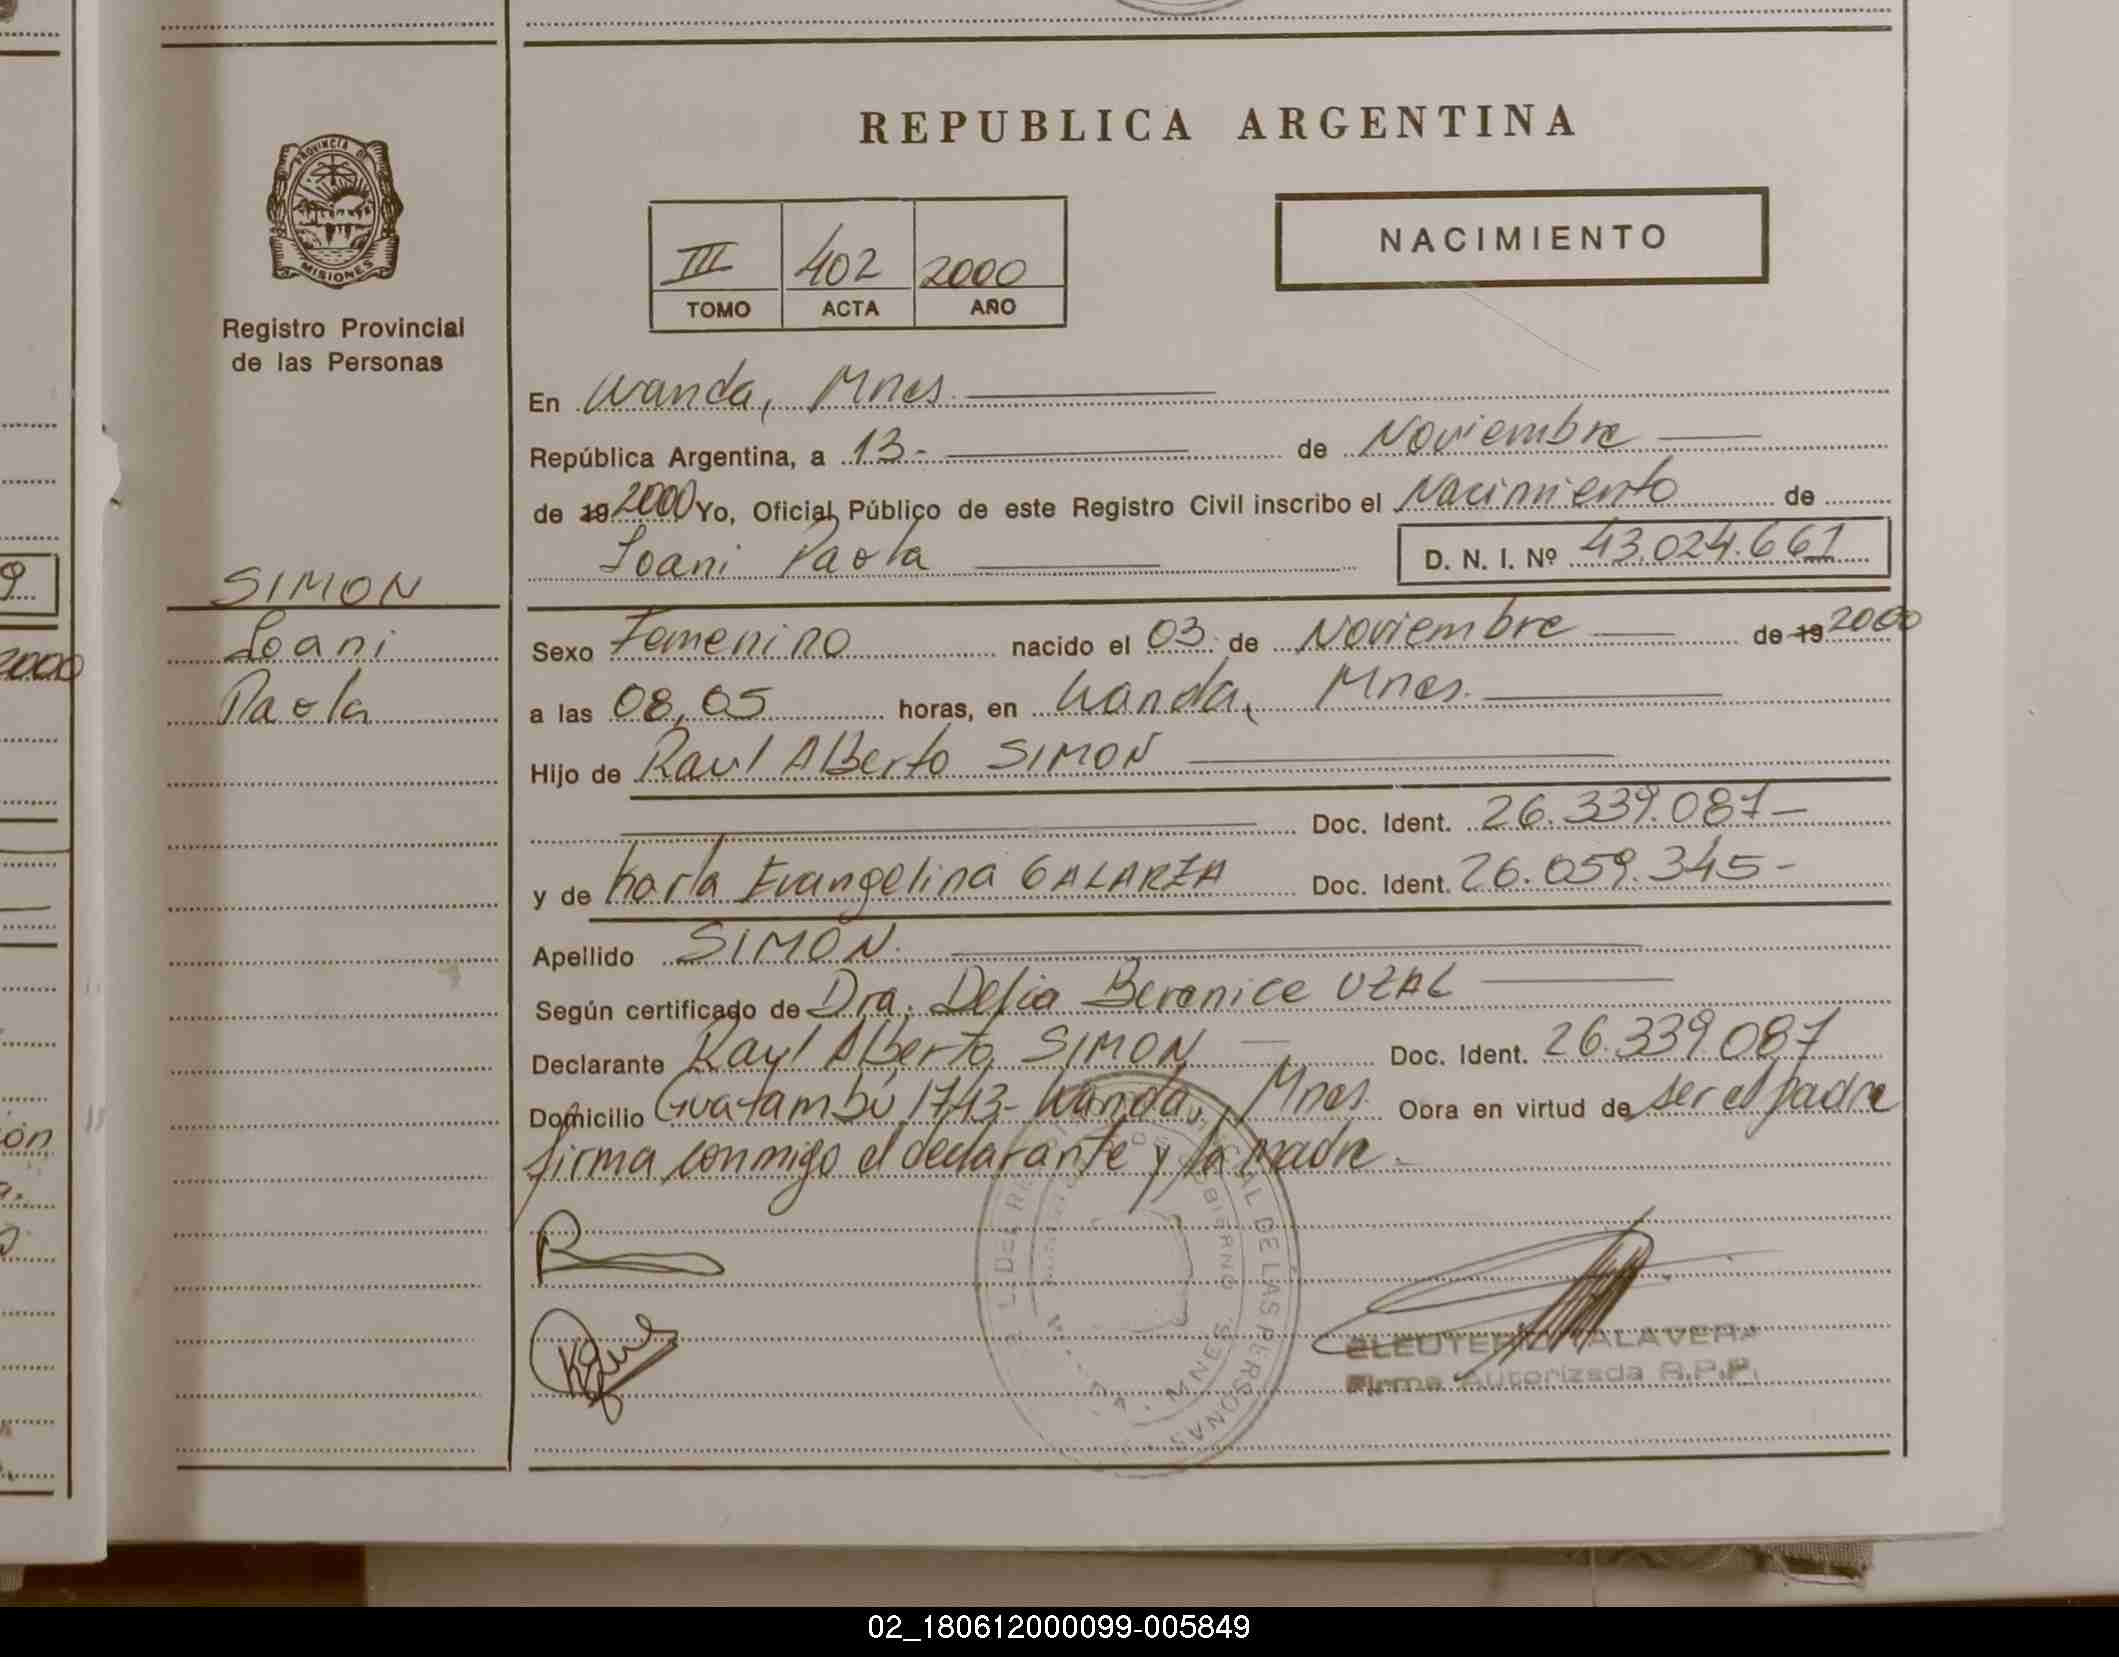 PROVINCIA DE
MISIONES
Registro Provincial
de las Personas
SIMON
Loani
Paola
REPUBLICA ARGENTINA
III 402 2000
TOMO ACTA AÑO
NACIMIENTO
En Wanda, Mnes.
República Argentina, a 13- de Noviembre
de 19 2000 Yo, Oficial Público de este Registro Civil inscribo el Nacimiento de
Loani Paola D. N. I. Nº 43.024.661
Sexo Femenino nacido el 03 de Noviembre de 19 2000
a las 08,05 horas, en Wanda, Mnes.
Hijo de Raul Alberto SIMON
Doc. Ident. 26.339.087-
y de Karla Evangelina GALARZA Doc. Ident. 26.059.345-
Apellido SIMON.
Según certificado de Dra. Delia Berenice UZAL
Declarante Raul Alberto SIMON Doc. Ident. 26.339.087
Domicilio Guatambú 1743- Wanda, Mnes. Obra en virtud de ser el padre
firma conmigo el declarante y la madre.
DE LAS PERSONAS
MNES.
ELEUTERIO TALAVERA
Firma Autorizada R.P.P.
9
2000
ón
02_180612000099-005849